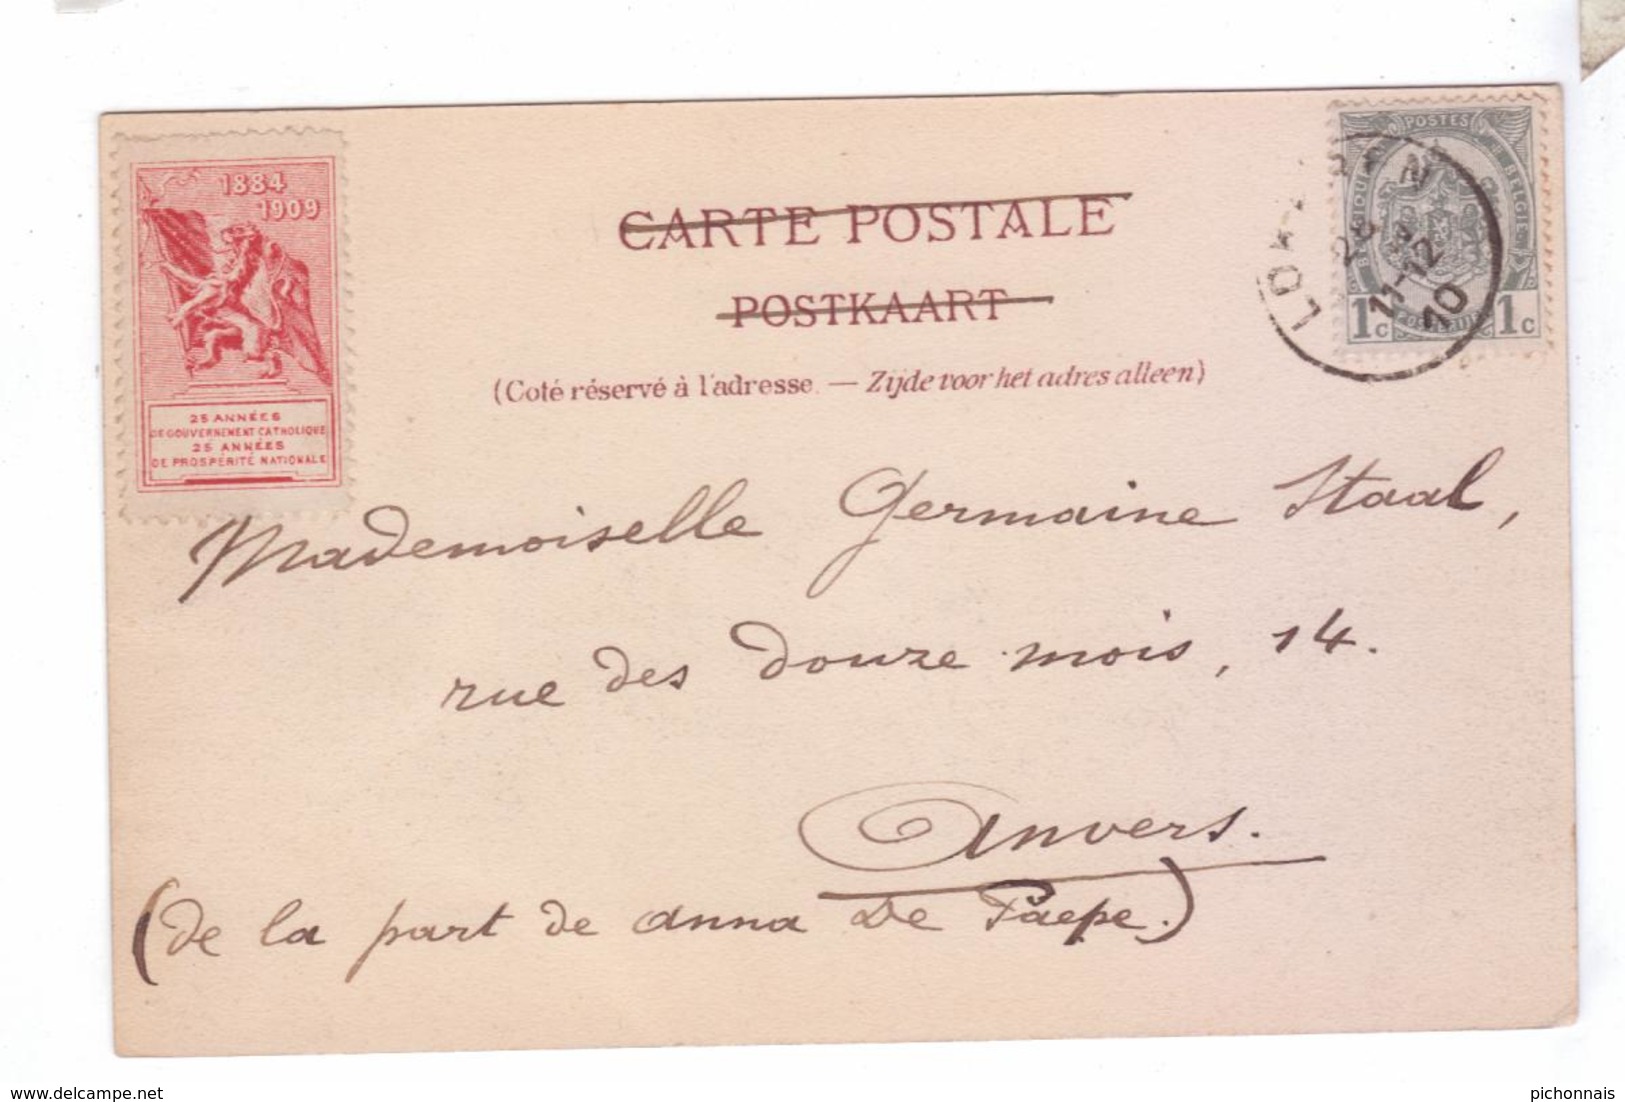 1884
1909
25 ANNÉES
DE GOUVERNEMENT CATHOLIQUE
25 ANNÉES
DE PROSPÉRITÉ NATIONALE
CARTE POSTALE
POSTKAART
(Coté réservé à l'adresse. — Zijde voor het adres alleen)
POSTES
BELGIQUE
BELGIE
1c 1c
11-12
10
Mademoiselle Germaine Staal,
rue des douze mois, 14.
Anvers.
(de la part de Anna De Paepe.)
delcampe.net
pichonnais